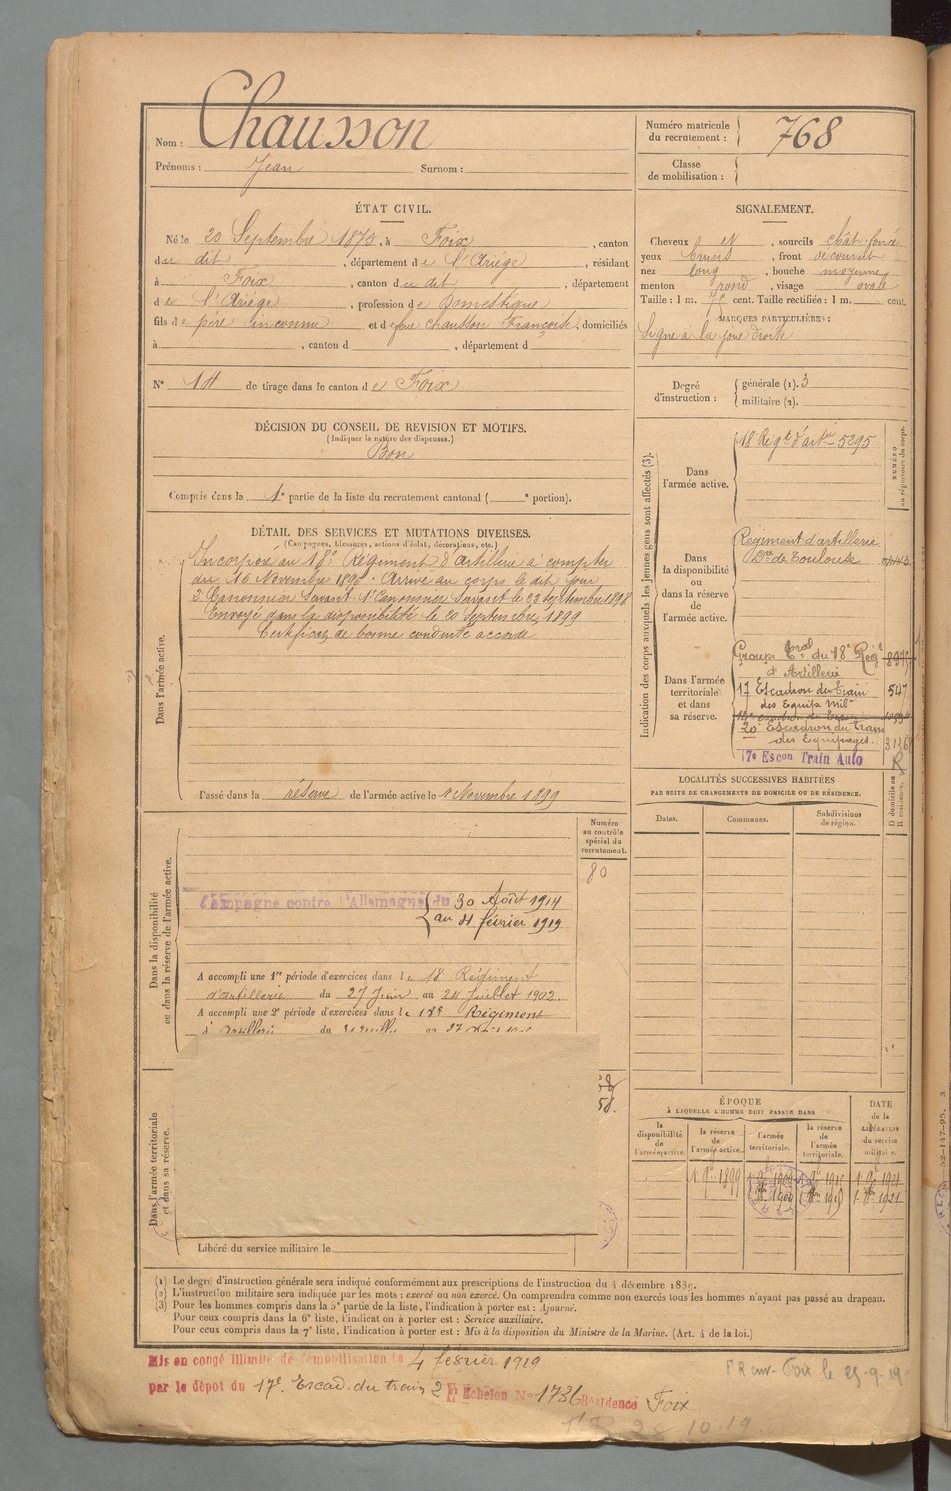 Nom : Chausson
Prénoms : Jean Surnom :
Numéro matricule du recrutement : 768
Classe de mobilisation :
ÉTAT CIVIL.
Né le 20 Septembre 1875, à Foix, canton
du dit, département de l'Ariège, résidant
à Foix, canton du dit, département
de l'Ariège, profession de Domestique
fils de père inconnu et de Chausson Françoise, domiciliés
à , canton d , département d
N° 14 de tirage dans le canton de Foix
DÉCISION DU CONSEIL DE REVISION ET MOTIFS.
(Indiquer la nature des dispenses.)
Bon
Compris dans la 1e partie de la liste du recrutement cantonal ( e portion).
SIGNALEMENT.
Cheveux et , sourcils chât foncé
yeux bruns , front découvert
nez long , bouche moyenne
menton rond , visage ovale
Taille : 1 m. cent. Taille rectifiée : 1 m. cent.
MARQUES PARTICULIÈRES :
Signe à la joue droite
Degré d'instruction : générale (1). 3
militaire (2).
DÉTAIL DES SERVICES ET MUTATIONS DIVERSES.
(Campagnes, blessures, actions d'éclat, décorations, etc.)
Dans l'armée active.
Incorporé au 18e Régiment d'artillerie à compter
du 16 Novembre 1896. Arrivé au corps le dit jour
2e Canonnier Servant 1er Canonnier Servant le 23 septembre 1898
Envoyé dans la disponibilité le 20 Septembre 1899
Certificat de bonne conduite accordé
Passé dans la réserve de l'armée active le 1er Novembre 1899
Indication des corps auxquels les jeunes gens sont affectés (3).
NUMÉRO au répertoire du corps.
Dans l'armée active.
18e Régt d'artie 5295
Dans la disponibilité ou dans la réserve de l'armée active.
Régiment d'artillerie
de Toulouse
Dans l'armée territoriale et dans sa réserve.
Groupe du 18e Régt
d'Artillerie
17 Escadron du Train 547
des Equip. Milres
20e Escadron du Train
des Equipages.
17e Escon Train Auto
R
LOCALITÉS SUCCESSIVES HABITÉES
PAR SUITE DE CHANGEMENTS DE DOMICILE OU DE RÉSIDENCE.
Dates. Communes. Subdivisions de région. D domicile ou R résidence.
Dans la disponibilité ou dans la réserve de l'armée active.
Numéro au contrôle spécial du recrutement.
80
Campagne contre l'Allemagne du 30 Août 1914
au 4 février 1919
A accompli une 1re période d'exercices dans le 18 Régiment
d'artillerie du 27 Juin au 24 Juillet 1902.
A accompli une 2e période d'exercices dans le 18e Régiment
d'Artillerie du au
58.
Dans l'armée territoriale et dans sa réserve.
Libéré du service militaire le
ÉPOQUE
À LAQUELLE L'HOMME DOIT PASSER DANS
la disponibilité de l'armée active. la réserve de l'armée active. l'armée territoriale. la réserve de l'armée territoriale.
DATE de la LIBÉRATION du service militaire.
1 9bre 1899
(1) Le degré d'instruction générale sera indiqué conformément aux prescriptions de l'instruction du 4 décembre 1889.
(2) L'instruction militaire sera indiquée par les mots : exercé ou non exercé. On comprendra comme non exercés tous les hommes n'ayant pas passé au drapeau.
(3) Pour les hommes compris dans la 5e partie de la liste, l'indication à porter est : Ajourné.
Pour ceux compris dans la 6e liste, l'indication à porter est : Service auxiliaire.
Pour ceux compris dans la 7e liste, l'indication à porter est : Mis à la disposition du Ministre de la Marine. (Art. 4 de la loi.)
Mis en congé illimité de démobilisation le 4 février 1919
par le dépôt du 17e Escad. du train 2 Echelon N° 1736 Résidence Foix
Foix le 25-9-19
28.10.19